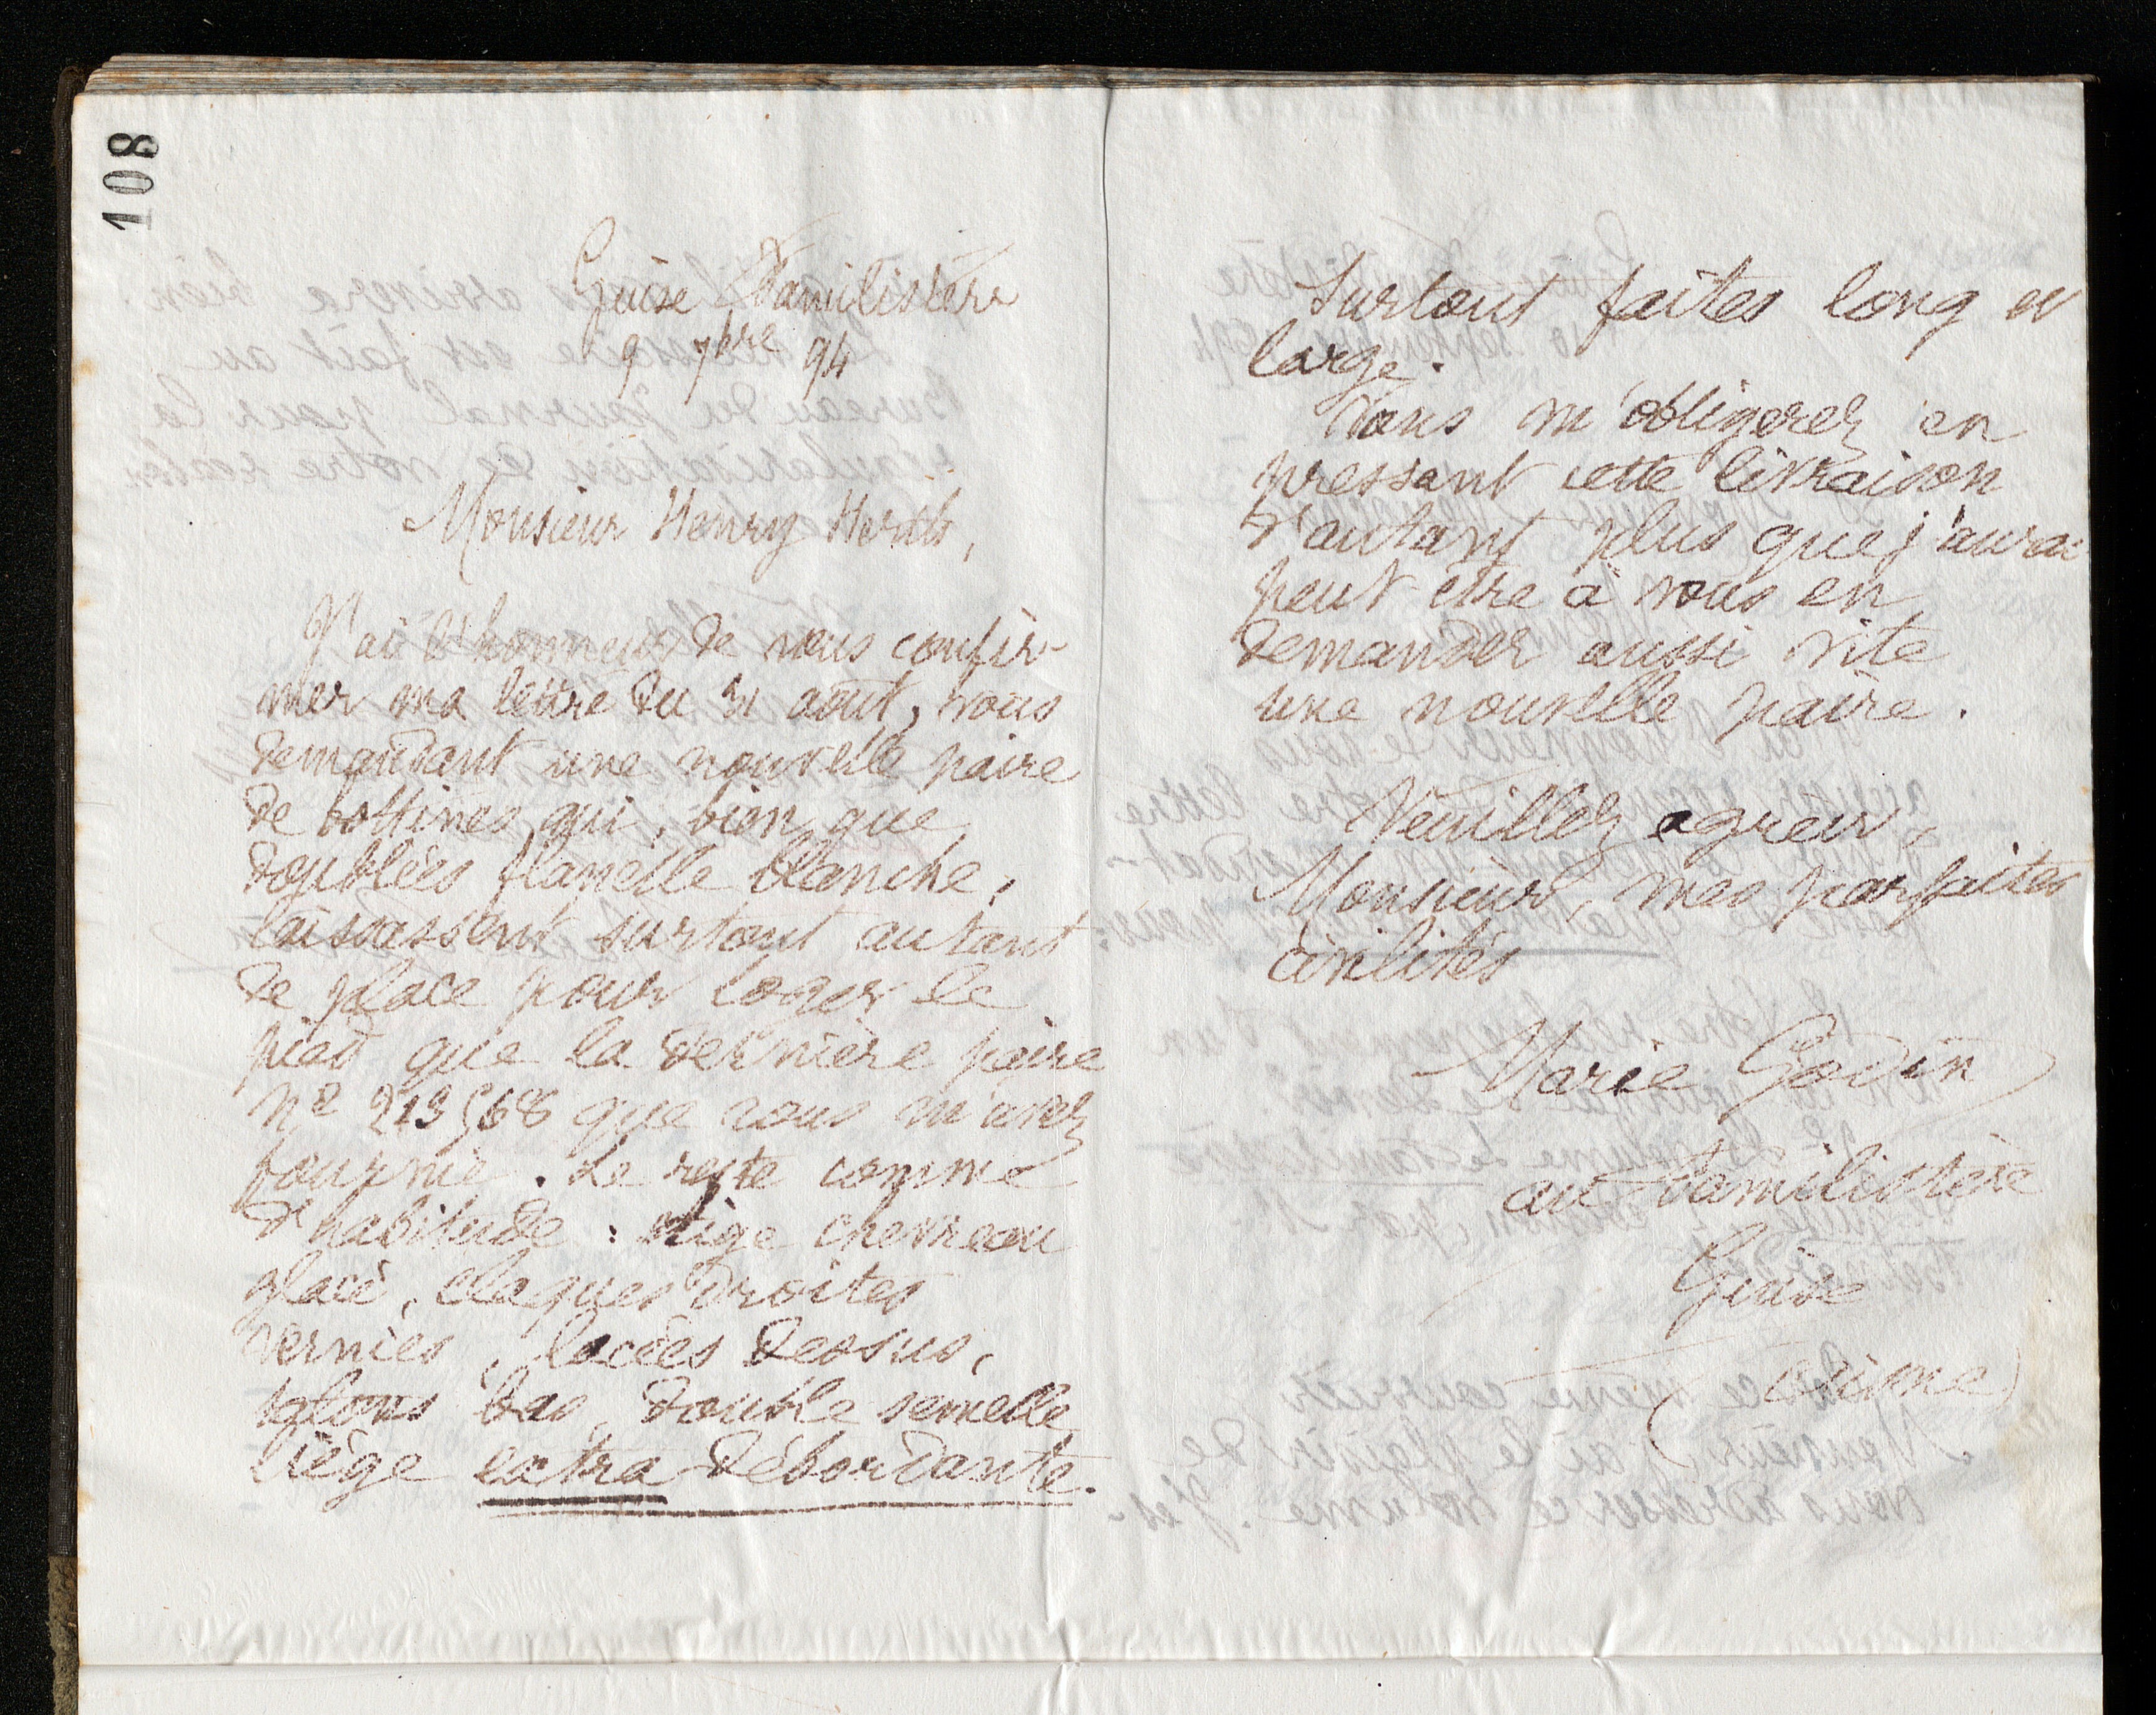 108
Guise Familistère
9 7bre 94
Monsieur Henry
J'ai l'honneur de vous confir-
mer ma lettre du 31 août, vous
demandant une nouvelle paire
de bottines qui, bien que
doublées flanelle blanche,
laissassent surtout autant
de place pour loger le
pied que la dernière paire
No 213568 que vous m'avez
fournie. Le reste comme
d'habitude : tige chevreau
glacé, claques droites
vernies, lacées dessus,
talons bas, double semelle
liège extra débordante.
Surtout faites long et
large.
Vous m'obligerez en
pressant cette livraison
d'autant plus que j'aurai
peut être à vous en
demander aussi vite
une nouvelle paire.
Veuillez agréer,
Monsieur, mes parfaites
civilités
Marie Godin
au Familistère
Guise
(Aisne)